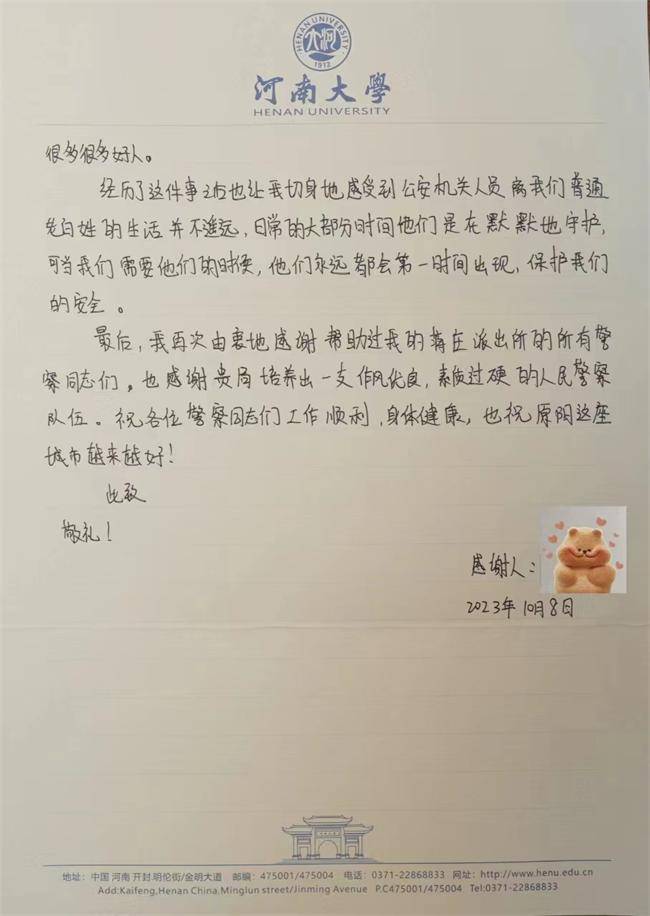 HENAN UNIVERSITY
1912
河南大學
HENAN UNIVERSITY
很多很多好人。
经历了这件事之后也让我切身地感受到公安机关人员离我们普通
老百姓的生活并不遥远，日常的大部分时间他们是在默默地守护，
可当我们需要他们的时候，他们永远都会第一时间出现，保护我们
的安全。
最后，我再次由衷地感谢帮助过我的蒋庄派出所的所有警
察同志们，也感谢贵局培养出一支作风优良，素质过硬的人民警察
队伍。祝各位警察同志们工作顺利，身体健康，也祝原阳这座
城市越来越好！
此致
敬礼！
感谢人：
2023年10月8日
地址：中国 河南 开封.明伦街/金明大道 邮编：475001/475004 电话：0371-22868833 网址：http://www.henu.edu.cn
Add:Kaifeng,Henan China,Minglun street/Jinming Avenue P.C475001/475004 Tel:0371-22868833